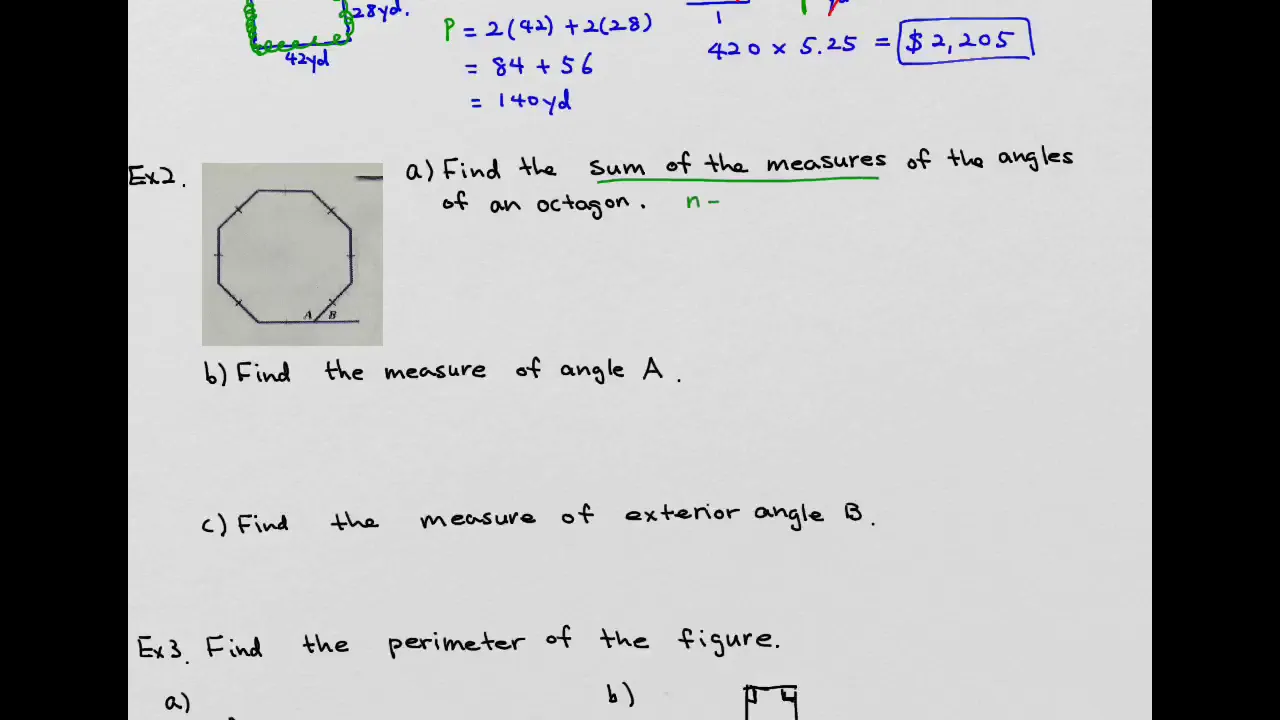 28yd.
42yd
P = 2(42) + 2(28)
= 84 + 56
= 140yd
1
420 × 5.25 = $2,205
Ex2.
a) Find the sum of the measures of the angles
of an octagon. n -
A B
b) Find the measure of angle A.
c) Find the measure of exterior angle B.
Ex3. Find the perimeter of the figure.
a)
b)